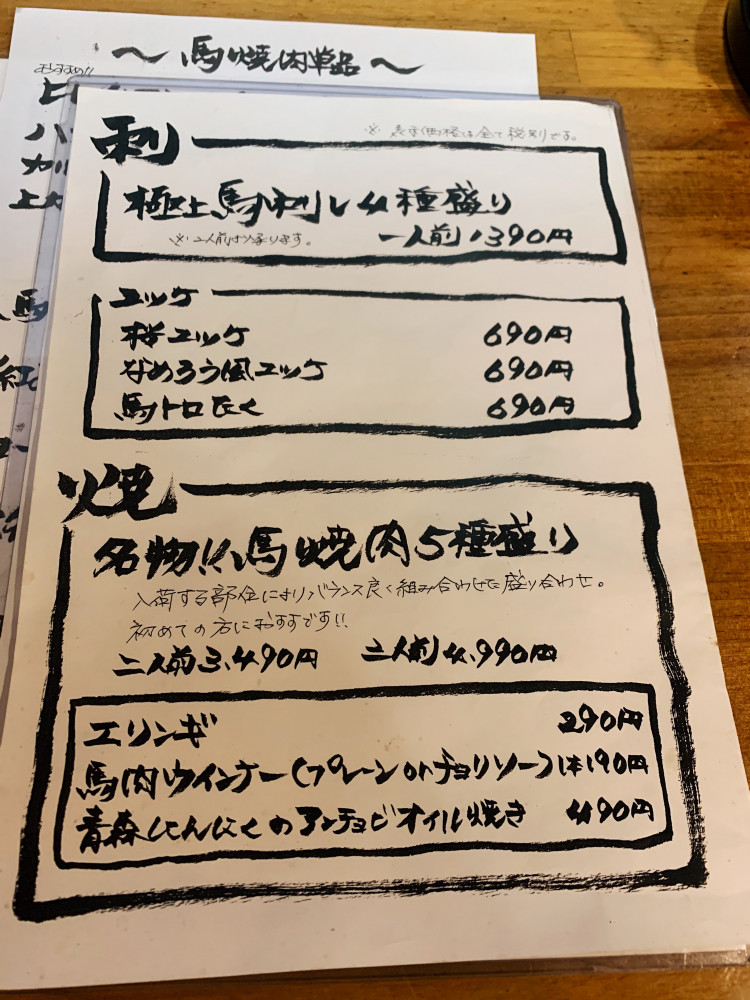 〜 馬焼肉単品 〜
おすすめ!!
刺
※ 表示価格は全て税別です。
極上馬刺し4種盛り
※二人前より承ります。 一人前 1390円
ユッケ
桜ユッケ 690円
なめろう風ユッケ 690円
馬トロたく 690円
焼
名物!!馬焼肉5種盛り
入荷する部位によりバランス良く組み合わせた盛り合わせ。
初めての方におすすめです!!
二人前3,490円 三人前4,990円
エリンギ 290円
馬肉ウインナー(プレーンorチョリソー)1本190円
青森にんにくのアンチョビオイル焼き 490円